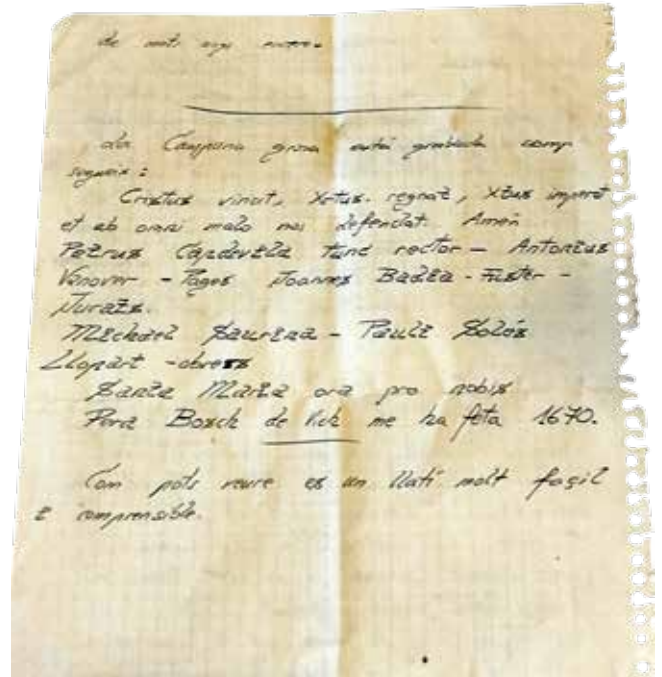 de
La Campana grossa está grabada comp
segueix :
Cristus vincit, Xrtus. regnat, Xtus imperat
et ab omni malo nos defendat. Amen
Petrus Capdevila tunc rector — Antonius
Vanover - Pages Joannes Badia - Fuster -
Jurats.
Michael Saurina - Pauli Solés
Llopart - obress
Santa Maria ora pro nobis
Pera Bosch de Vich me ha feta 1670.
Com pots veure es un llatí molt façil
i comprensible.